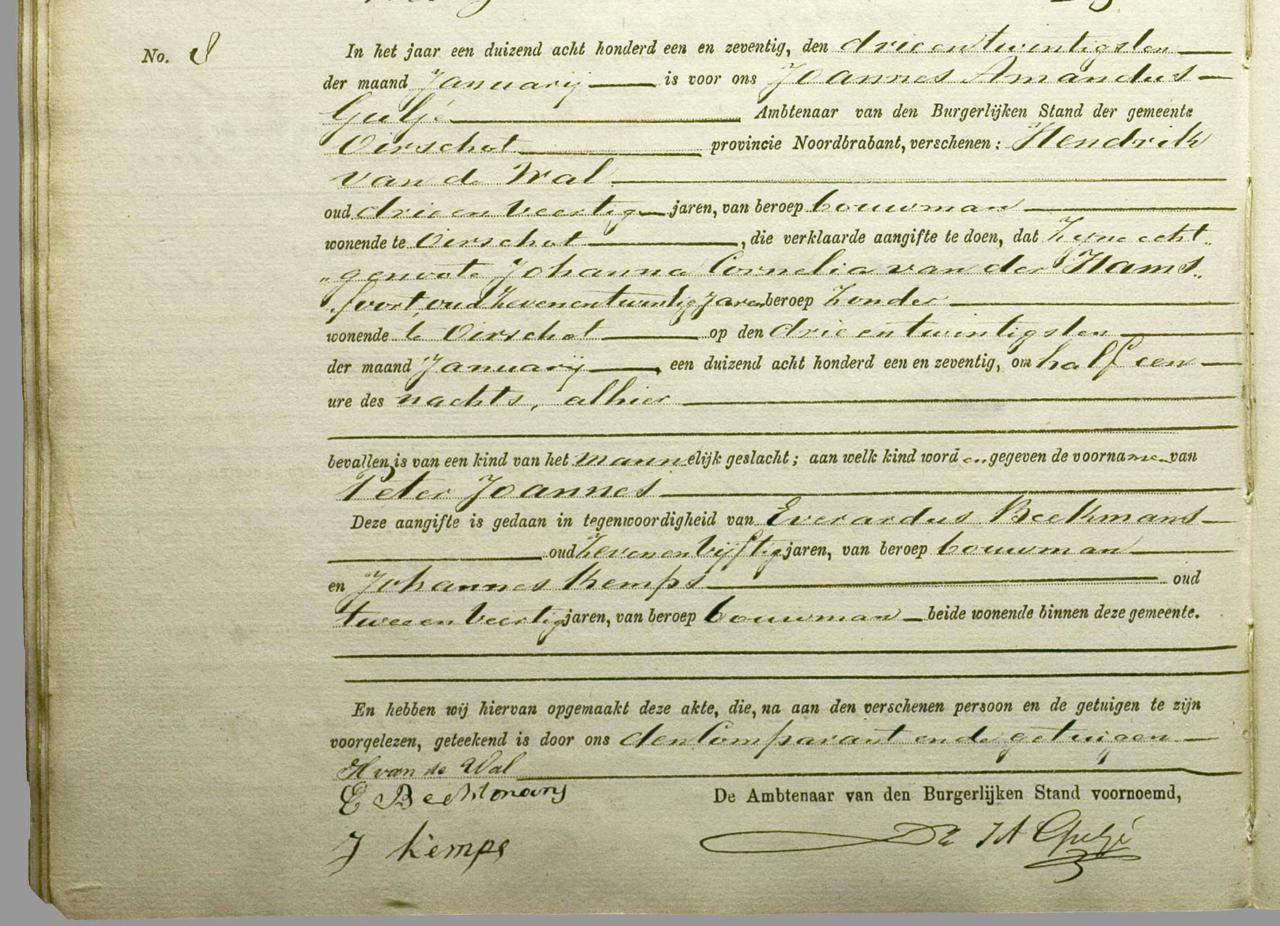 No. 8
In het jaar een duizend acht honderd een en zeventig, den drieentwintigsten
der maand Januarij is voor ons Joannes Amandus
Guljé Ambtenaar van den Burgerlijken Stand der gemeente
Oirschot provincie Noordbrabant, verschenen: Hendrik
van de Wal
oud drieenveertig jaren, van beroep bouwman
wonende te Oirschot, die verklaarde aangifte te doen, dat zijne echt„
„genoote Johanna Cornelia van der Hams„
„foort, oud zevenentwintig jaren beroep zonder
wonende te Oirschot op den drieentwintigsten
der maand Januarij, een duizend acht honderd een en zeventig, om half een
ure des nachts, alhier
bevallen is van een kind van het mannelijk geslacht; aan welk kind worden gegeven de voorname van
Peter Joannes
Deze aangifte is gedaan in tegenwoordigheid van Everardus Beekmans
oud zevenenvijftig jaren, van beroep bouwman
en Johannes Kemps oud
tweeenveertig jaren, van beroep bouwman beide wonende binnen deze gemeente.
En hebben wij hiervan opgemaakt deze akte, die, na aan den verschenen persoon en de getuigen te zijn
voorgelezen, geteekend is door ons den Comparant en de getuigen
H van de Wal
E Beekmans
De Ambtenaar van den Burgerlijken Stand voornoemd,
J Kemps
JA Guljé